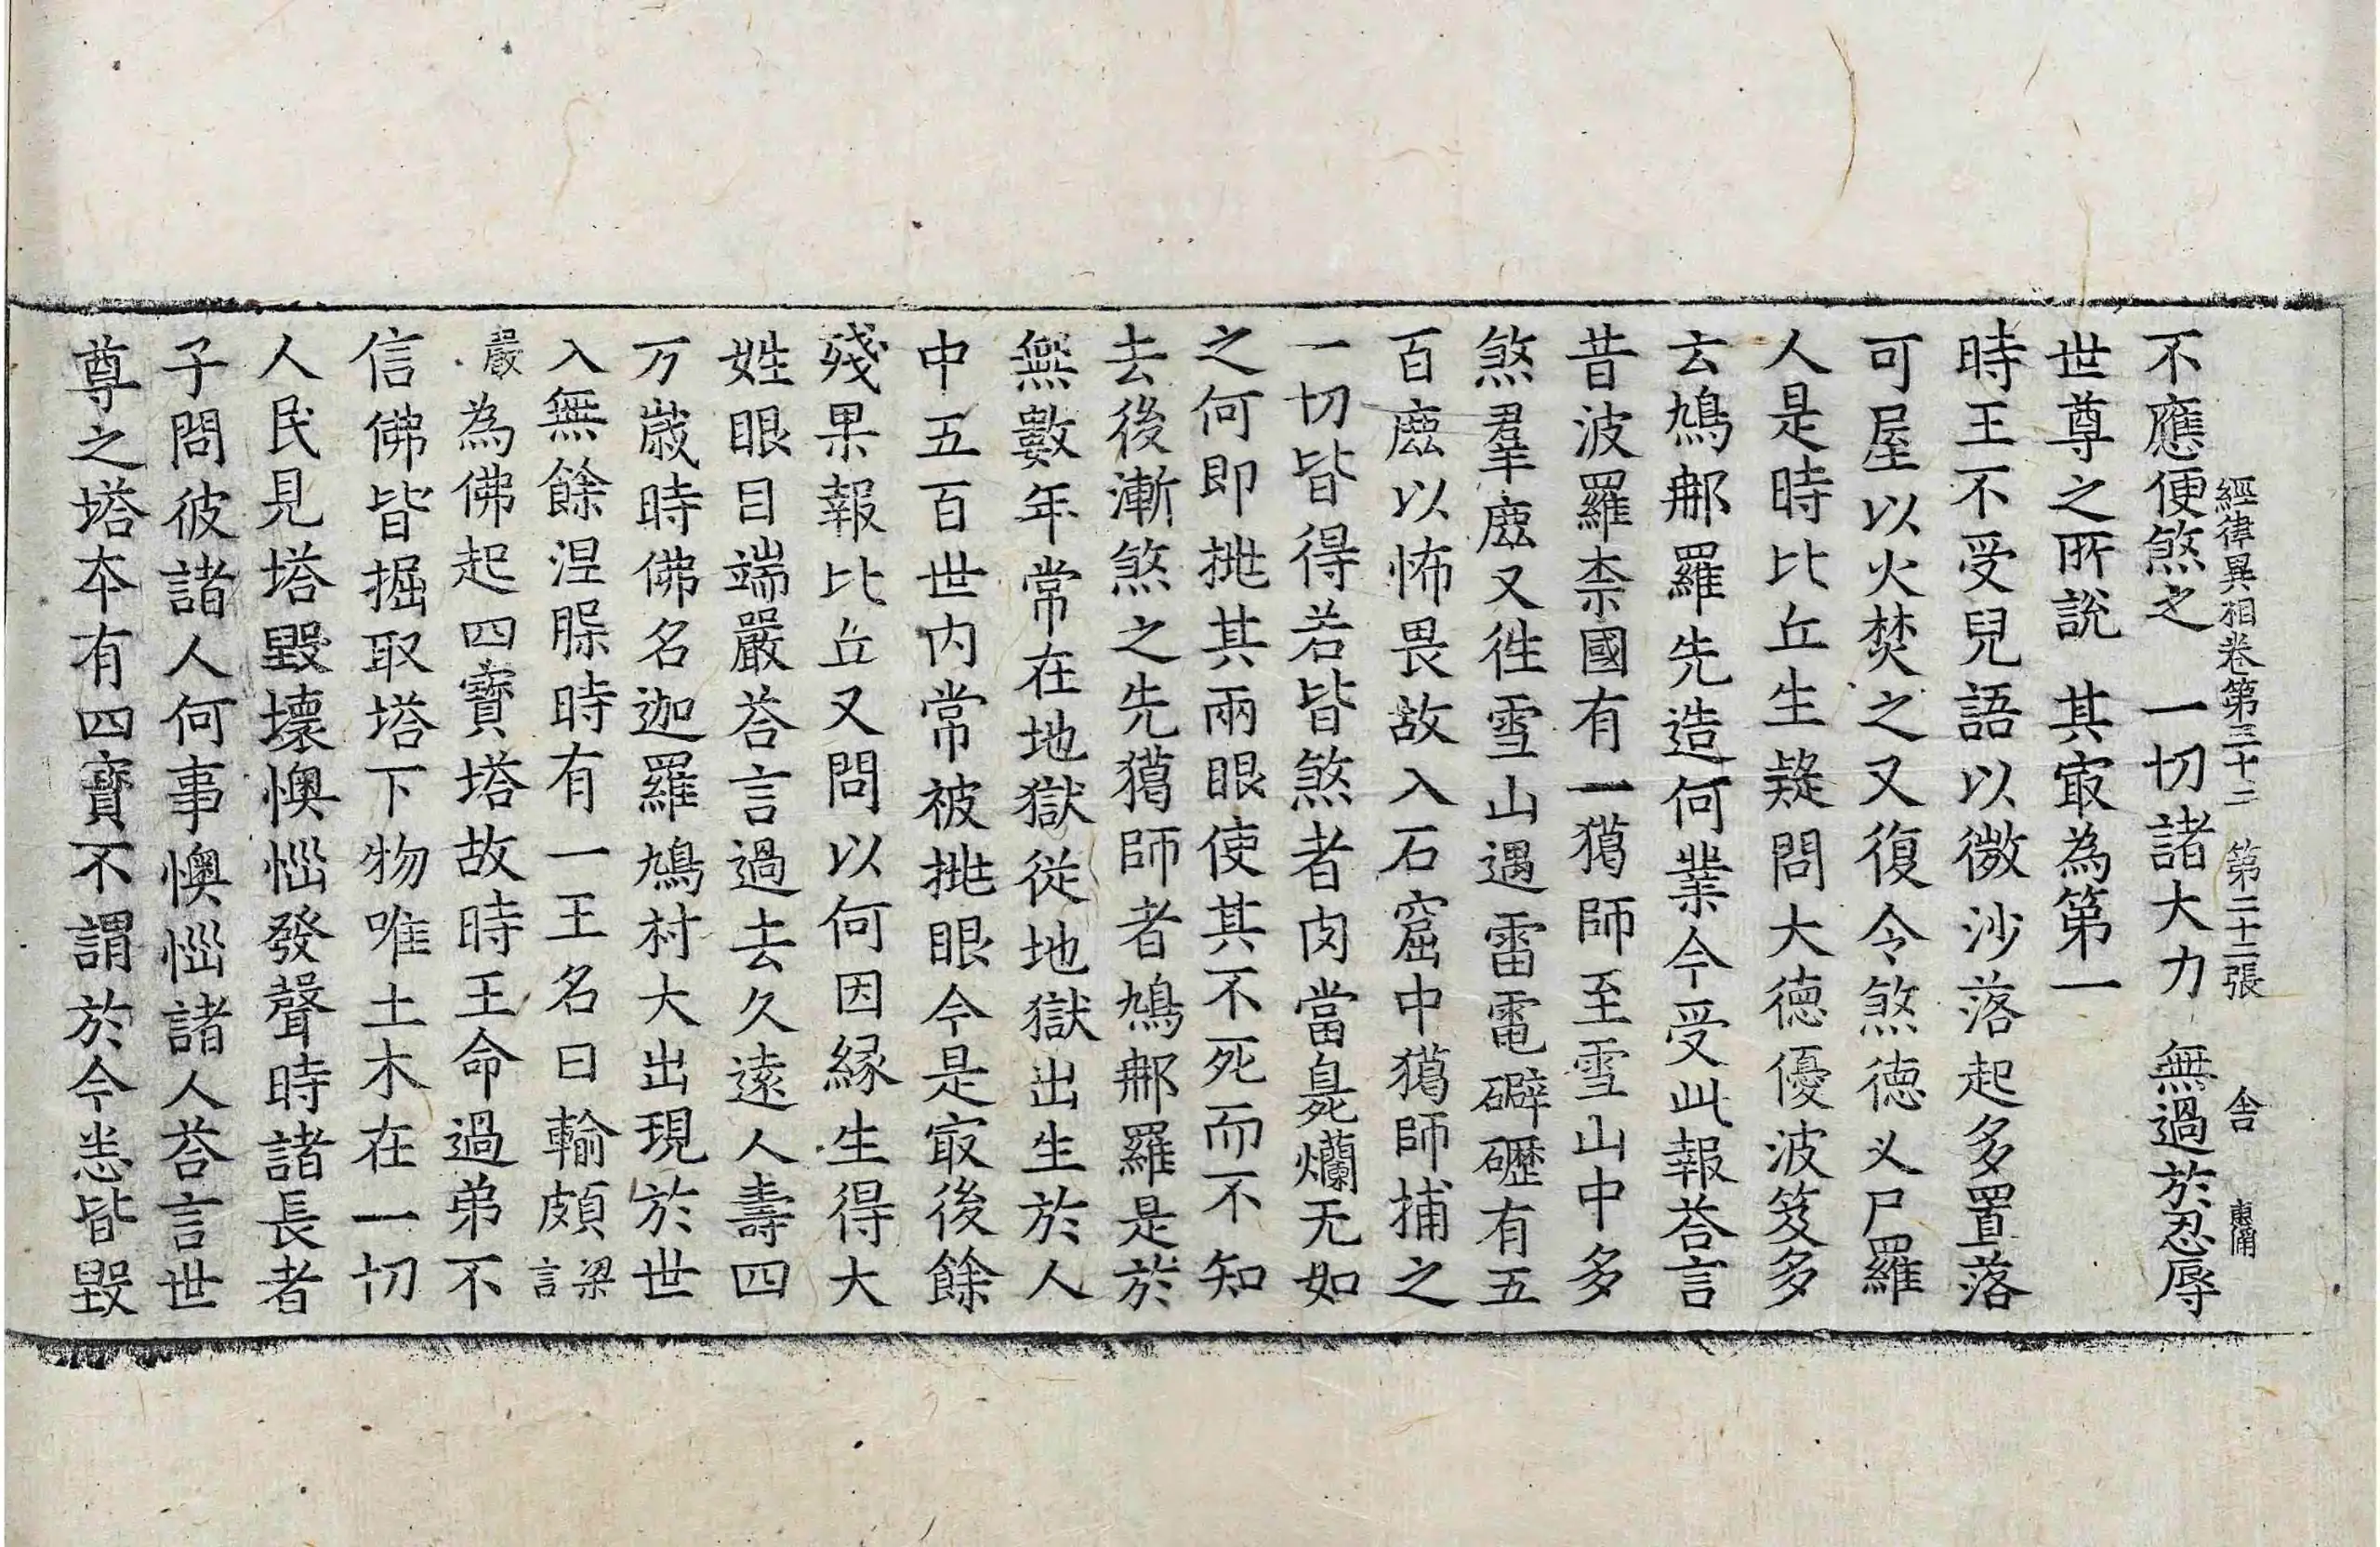 不應便煞之　一切諸大力　無過於忍辱
經律異相卷第三十二　第二十二張　舎
世尊之所說　其㝡為第一
時王不受兒語以微沙落起多置落
可屋以火焚之又復令煞徳乂尸羅
人是時比丘生疑問大徳優波笈多
云鳩郍羅先造何業今受此報荅言
昔波羅柰國有一獦師至雪山中多
煞羣鹿又徃雪山遇雷電礔礰有五
百鹿以怖畏故入石窟中獦師捕之
一切皆得若皆煞者肉當臭爛无如
之何即挑其兩眼使其不死而不知
去後漸煞之先獦師者鳩郍羅是於
無數年常在地獄從地獄出生於人
中五百世内常被挑眼今是㝡後餘
殘果報比丘又問以何因緣生得大
姓眼目端嚴荅言過去久遠人壽四
万歲時佛名迦羅鳩村大出現於世
入無餘涅縣時有一王名曰輸頗梁言
嚴為佛起四寶塔故時王命過弟不
信佛皆掘取塔下物唯土木在一切
人民見塔毀壞懊惱發聲時諸長者
子問彼諸人何事懊惱諸人荅言世
尊之塔本有四寶不謂於今悉皆毀